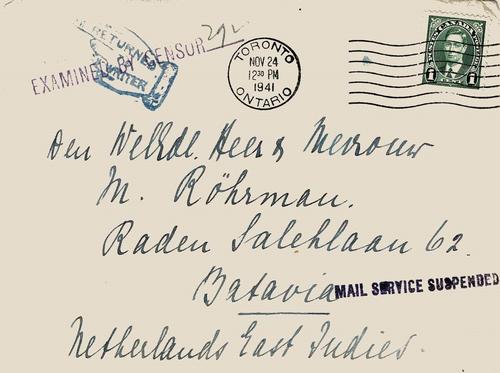 292
EXAMINED BY CENSOR
BE RETURNED
TO
WRITER
TORONTO
NOV 24
12 30 PM
1941
ONTARIO
POSTES CANADA POSTAGE
1 1
Den WelEdl. Heer & Mevrouw
M. Röhrman.
Raden Salehlaan 62.
Batavia
MAIL SERVICE SUSPENDED
Netherlands East Indies.